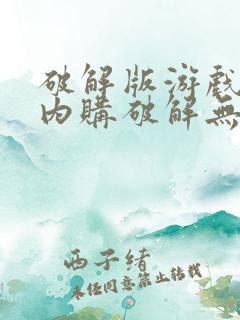 破解版游戲
内購破解無
西子緒
未经同意禁止转载